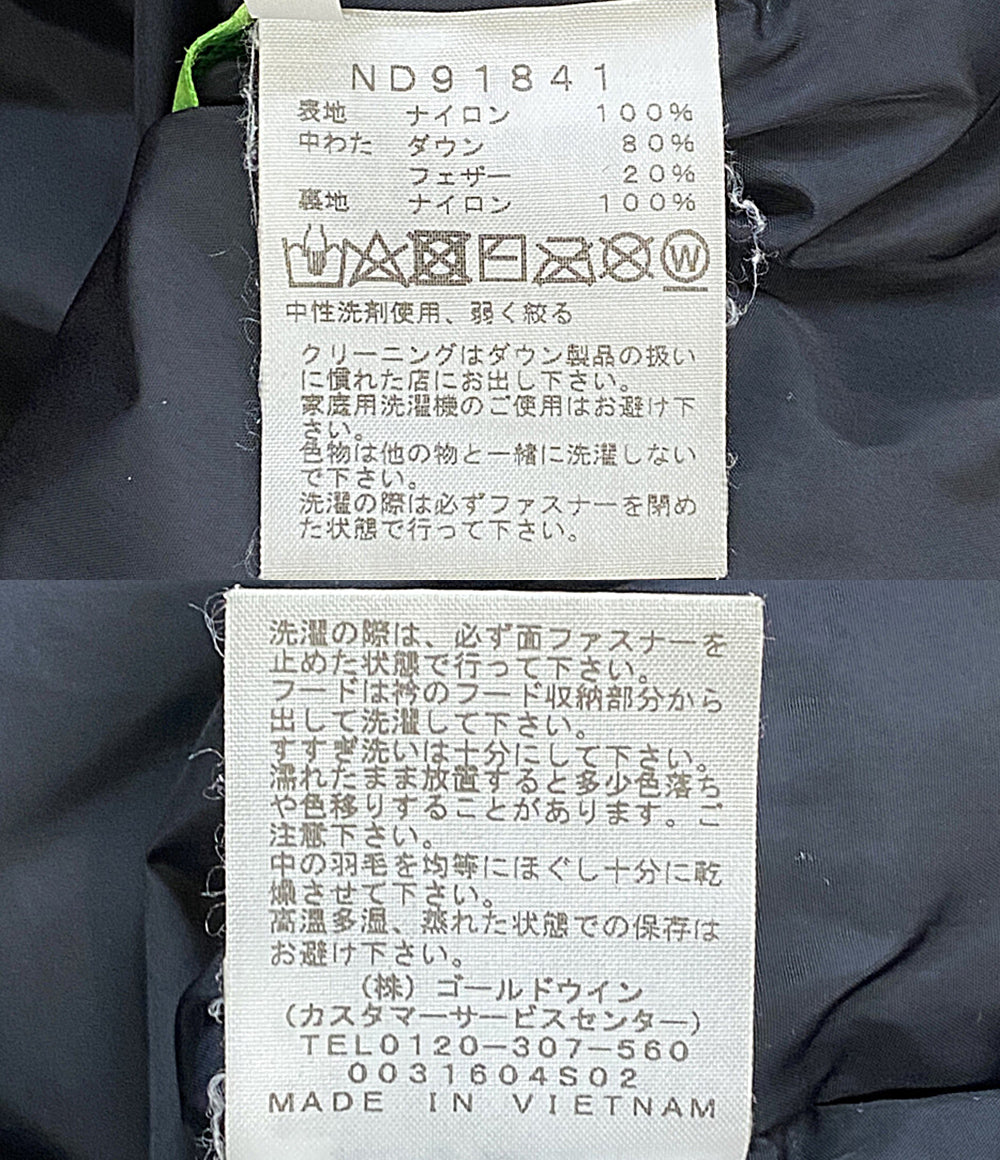 ND91841
表地 ナイロン 100%
中わた ダウン 80%
フェザー 20%
裏地 ナイロン 100%
W
中性洗剤使用、弱く絞る
クリーニングはダウン製品の扱い
に慣れた店にお出し下さい。
家庭用洗濯機のご使用はお避け下
さい。
色物は他の物と一緒に洗濯しない
で下さい。
洗濯の際は必ずファスナーを閉め
た状態で行って下さい。
洗濯の際は、必ず面ファスナーを
止めた状態で行って下さい。
フードは衿のフード収納部分から
出して洗濯して下さい。
すすぎ洗いは十分にして下さい。
濡れたまま放置すると多少色落ち
や色移りすることがあります。ご
注意下さい。
中の羽毛を均等にほぐし十分に乾
燥させて下さい。
高温多湿、蒸れた状態での保存は
お避け下さい。
(株)ゴールドウイン
(カスタマーサービスセンター)
TEL0120-307-560
0031604S02
MADE IN VIETNAM